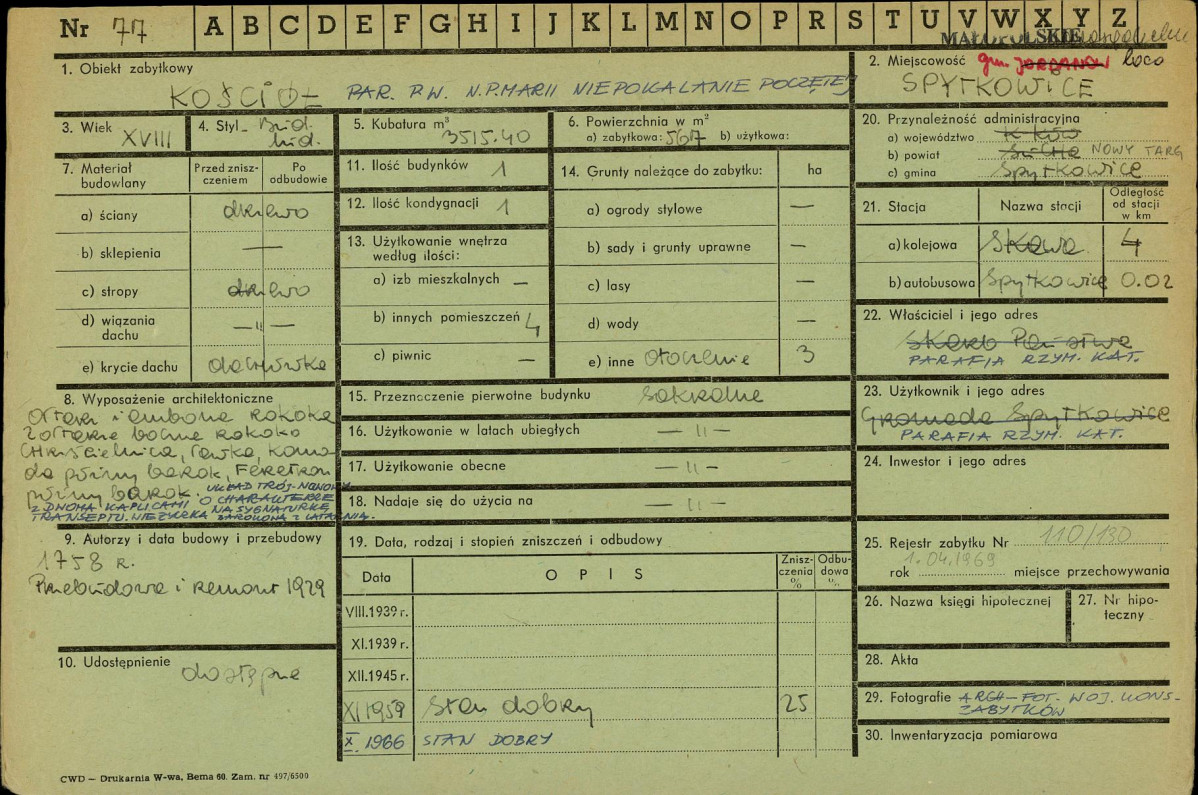 Nr 77 A B C D E F G H I J K L M N O P R S T U V W X Y Z
MAŁOPOLSKIE
1. Obiekt zabytkowy
KOŚCIÓŁ PAR. P.W. N.P.MARII NIEPOKALANIE POCZĘTEJ
2. Miejscowość gm. JORDANÓW loco
SPYTKOWICE
3. Wiek XVIII
4. Styl bud.
5. Kubatura m³ 3515.40
6. Powierzchnia w m²
a) zabytkowa: 567 b) użytkowa:
7. Materiał budowlany
Przed zniszczeniem
Po odbudowie
a) ściany drewo
b) sklepienia —
c) stropy drewo
d) wiązania dachu — „ —
e) krycie dachu dachówka
8. Wyposażenie architektoniczne
Ołtarz i ambona rokoko
2 ołtarze boczne rokoko
Chrzcielnica, ławka, komo-
da późny barok, Feretron
późny barok. UKŁAD TRÓJ-NAWOWY
Z DWOMA KAPLICAMI O CHARAKTERZE
TRANSEPTU. WIEŻYCZKA NA SYGNATURKĘ
BAROKOWA Z LATARNIĄ.
9. Autorzy i data budowy i przebudowy
1758 r.
Przebudowa i remont 1929
10. Udostępnienie dostępne
11. Ilość budynków 1
12. Ilość kondygnacji 1
13. Użytkowanie wnętrza według ilości:
a) izb mieszkalnych —
b) innych pomieszczeń 4
c) piwnic —
14. Grunty należące do zabytku: ha
a) ogrody stylowe —
b) sady i grunty uprawne —
c) lasy —
d) wody —
e) inne otoczenie 3
15. Przeznaczenie pierwotne budynku sakralne
16. Użytkowanie w latach ubiegłych — „ —
17. Użytkowanie obecne — „ —
18. Nadaje się do użycia na — „ —
19. Data, rodzaj i stopień zniszczeń i odbudowy
Data
OPIS
Zniszczenia %
Odbudowa %
VIII.1939 r.
XI.1939 r.
XII.1945 r.
XI 1959 Stan dobry 25
X. 1966 STAN DOBRY
20. Przynależność administracyjna
a) województwo K-ków
b) powiat Sucha NOWY TARG
c) gmina Spytkowice
21. Stacja
Nazwa stacji
Odległość od stacji w km
a) kolejowa Skawa 4
b) autobusowa Spytkowice 0.02
22. Właściciel i jego adres
Skarb Państwa
PARAFIA RZYM. KAT.
23. Użytkownik i jego adres
Gromada Spytkowice
PARAFIA RZYM. KAT.
24. Inwestor i jego adres
25. Rejestr zabytku Nr 110/130
1.04.1969
rok miejsce przechowywania
26. Nazwa księgi hipotecznej
27. Nr hipoteczny
28. Akta
29. Fotografie ARCH-FOT. WOJ. KONS-
ZABYTKÓW
30. Inwentaryzacja pomiarowa
CWD — Drukarnia W-wa, Bema 60. Zam. nr 497/6500